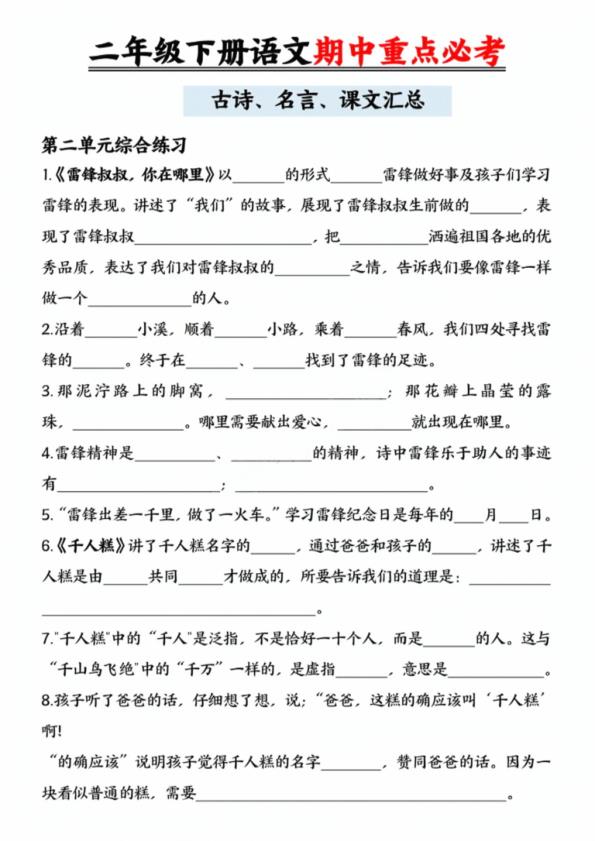 二年级下册语文期中重点必考
古诗、名言、课文汇总
第二单元综合练习
1.《雷锋叔叔，你在哪里》以______的形式______雷锋做好事及孩子们学习
雷锋的表现。讲述了“我们”的故事，展现了雷锋叔叔生前做的______，表
现了雷锋叔叔____________________，把__________洒遍祖国各地的优
秀品质，表达了我们对雷锋叔叔的________之情，告诉我们要像雷锋一样
做一个____________的人。
2.沿着______小溪，顺着______小路，乘着______春风，我们四处寻找雷
锋的______。终于在______、______找到了雷锋的足迹。
3.那泥泞路上的脚窝，__________________；那花瓣上晶莹的露
珠，____________。哪里需要献出爱心，________就出现在哪里。
4.雷锋精神是_________、_________的精神，诗中雷锋乐于助人的事迹
有__________________；_____________________。
5.“雷锋出差一千里，做了一火车。”学习雷锋纪念日是每年的____月____日。
6.《千人糕》讲了千人糕名字的_____，通过爸爸和孩子的_____，讲述了千
人糕是由_____共同_____才做成的，所要告诉我们的道理是：_________
______________________________。
7."千人糕"中的“千人"是泛指，不是恰好一十个人，而是______的人。这与
“千山鸟飞绝"中的“千万”一样的，是虚指______，意思是___________。
8.孩子听了爸爸的话，仔细想了想，说；“爸爸，这糕的确应该叫‘千人糕’
啊!
“的确应该”说明孩子觉得千人糕的名字_______，赞同爸爸的话。因为一
块看似普通的糕，需要___________________________________。